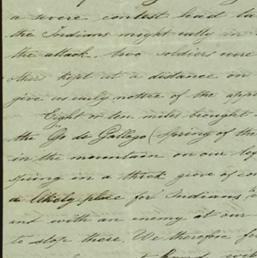 a severe contest had ta
the Indians might rally in
the attack. two soldiers were
other kept at a distance on
give us early notice of the appr
Eight or ten miles brought
the Ojo de Gallego (Spring of the
in the mountain on our lef
spring in a thick grove of co
a likely place for Indians
and with an enemy at our
to stop there. We therefore